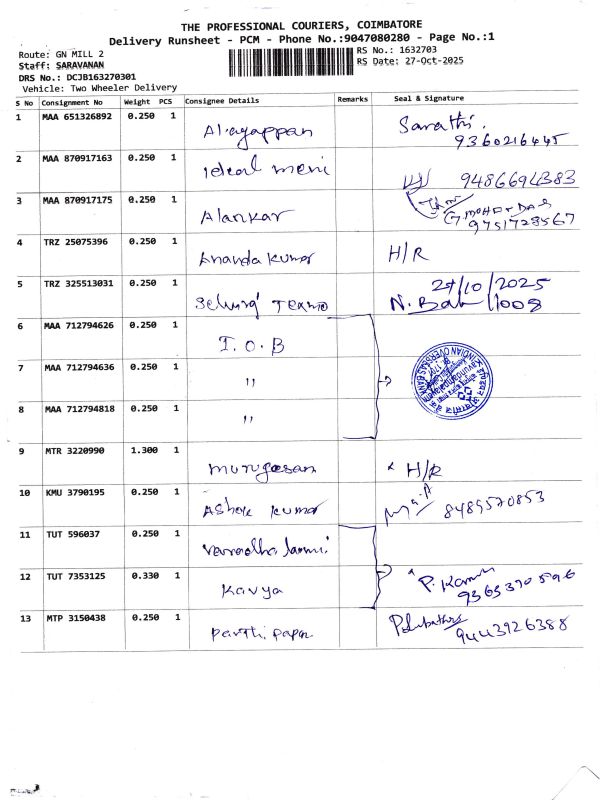 THE PROFESSIONAL COURIERS, COIMBATORE
Delivery Runsheet - PCM - Phone No.:9047080280 - Page No.:1
Route: GN MILL 2
RS No.: 1632703
Staff: SARAVANAN
RS Date: 27-Oct-2025
DRS No.: DCJB163270301
Vehicle: Two Wheeler Delivery
S No Consignment No Weight PCS Consignee Details Remarks Seal & Signature
1 MAA 651326892 0.250 1 Alagappan Sarathi.
9360216445
2 MAA 870917163 0.250 1 Ideal meni 9486694383
3 MAA 870917175 0.250 1 Alankar G.MOHAN DAS
9751728567
4 TRZ 25075396 0.250 1 Ananda kumar H/R
5 TRZ 325513031 0.250 1 27/10/2025
6 MAA 712794626 0.250 1 I.O.B
7 MAA 712794636 0.250 1 "
INDIAN OVERSEAS BANK
8 MAA 712794818 0.250 1 "
9 MTR 3220990 1.300 1 murugesan H/R
10 KMU 3790195 0.250 1 Ashok kumar 8489570853
11 TUT 596037 0.250 1
12 TUT 7353125 0.330 1 Kavya P.
9365370596
13 MTP 3150438 0.250 1 9443926388